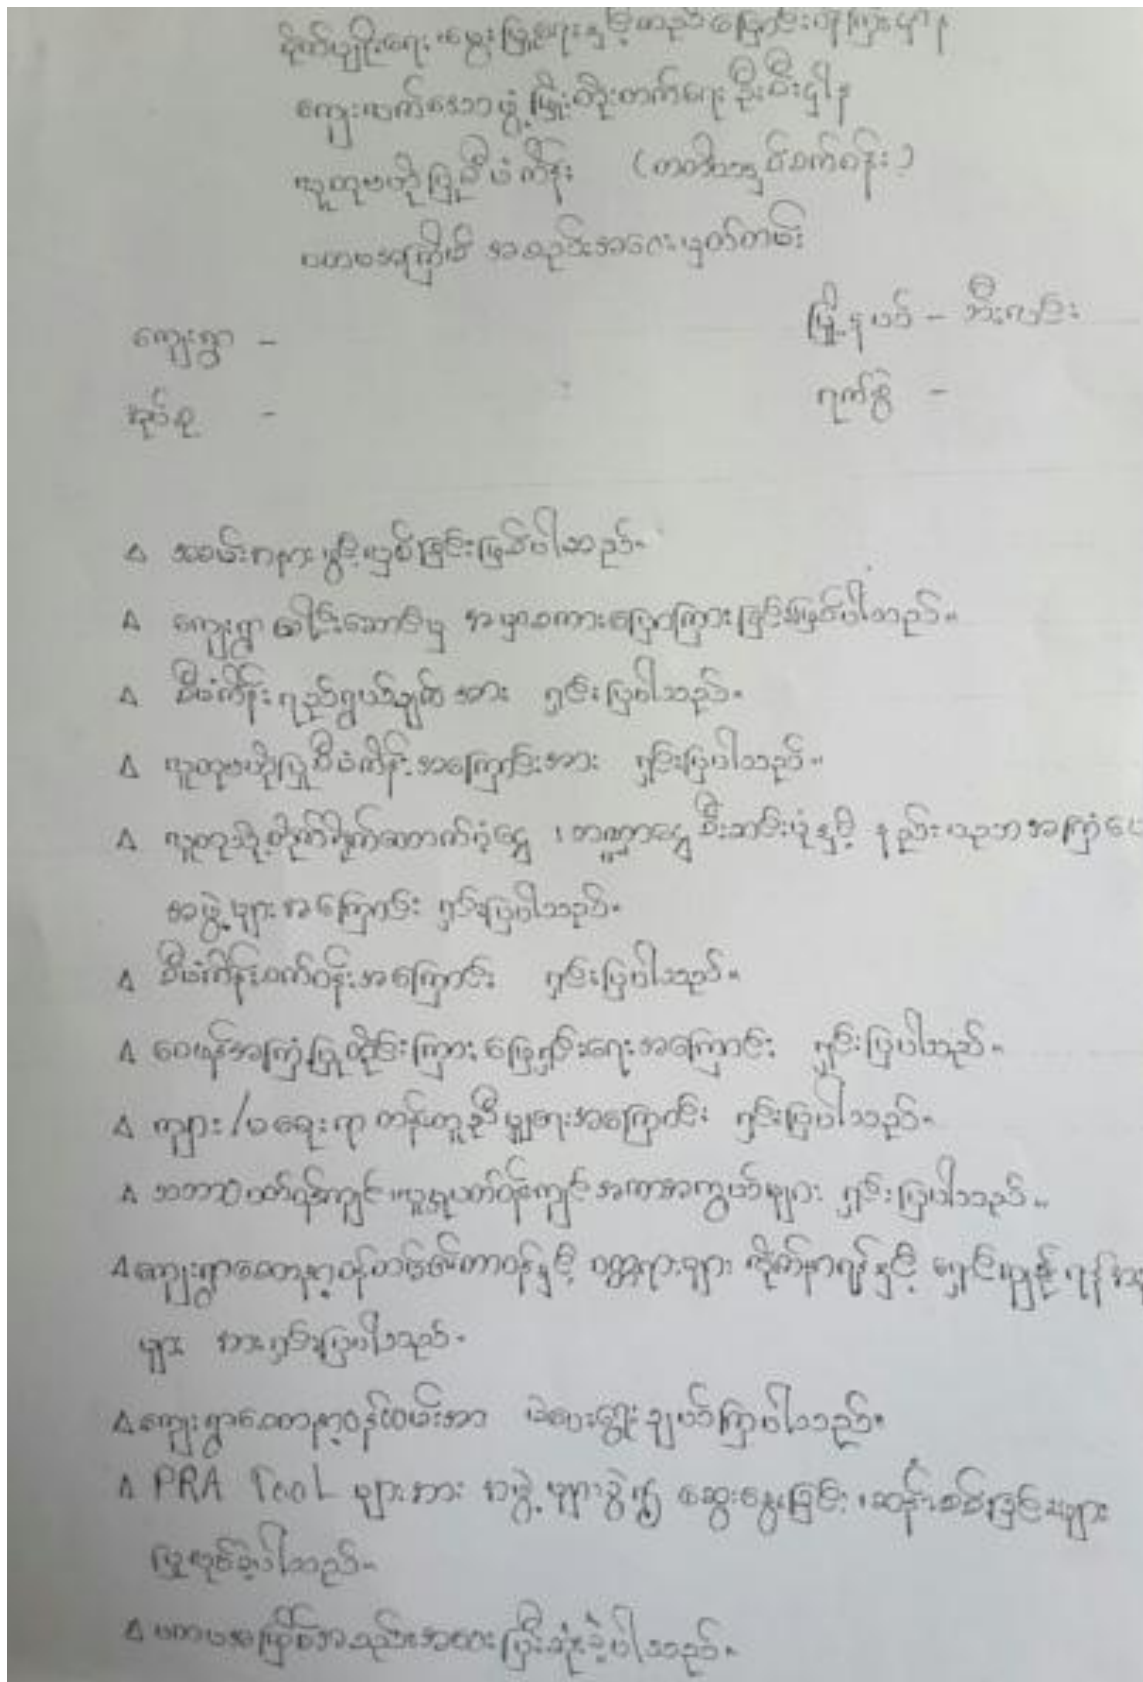 စိုက်ပျိုးရေး၊ မွေးမြူရေးနှင့်ဆည်မြောင်းဝန်ကြီးဌာန
ကျေးလက်ဒေသဖွံ့ဖြိုးတိုးတက်ရေးဦးစီးဌာန
လူထုဗဟိုပြုစီမံကိန်း (တတိယနှစ်စက်ဝန်း)
ပထမအကြိမ် အစည်းအဝေးမှတ်တမ်း
ကျေးရွာ -
မြို့နယ် - ဘီးလင်း
အုပ်စု -
ရက်စွဲ -
∆ အခမ်းအနားဖွင့်လှစ်ခြင်းဖြစ်ပါသည်။
∆ ကျေးရွာခေါင်းဆောင်မှ အမှာစကားပြောကြားခြင်းဖြစ်ပါသည်။
∆ စီမံကိန်းရည်ရွယ်ချက်အား ရှင်းပြပါသည်။
∆ လူထုဗဟိုပြုစီမံကိန်းအကြောင်းအား ရှင်းပြပါသည်။
∆ လူထုသို့တိုက်ရိုက်ထောက်ပံ့ငွေ ၊ ဘဏ္ဍာငွေစီးဆင်းပုံနှင့် နည်းပညာအကြံပေး
အဖွဲ့များအကြောင်း ရှင်းပြပါသည်။
∆ စီမံကိန်းစက်ဝန်းအကြောင်း ရှင်းပြပါသည်။
∆ ဝေဖန်အကြံပြုတိုင်ကြားဖြေရှင်းရေးအကြောင်း ရှင်းပြပါသည်။
∆ ကျား/မရေးရာ တန်းတူညီမျှရေးအကြောင်း ရှင်းပြပါသည်။
∆ သဘာဝပတ်ဝန်းကျင် ၊လူမှုပတ်ဝန်းကျင်အကာအကွယ်များ ရှင်းပြပါသည်။
∆ ကျေးရွာစေတနာ့ဝန်ထမ်း၏တာဝန်နှင့် ဝတ္တရားများ လိုက်နာရန်နှင့် ရှောင်ကြဉ်ရန်
များ အားရှင်းပြပါသည်။
∆ ကျေးရွာစေတနာ့ဝန်ထမ်းအား မဲပေးရွေးချယ်ကြပါသည်။
∆ PRA Tool များအား အဖွဲ့များခွဲ၍ ဆွေးနွေးခြင်း ၊ဆန်းစစ်ခြင်းများ
ပြုလုပ်ခဲ့ပါသည်။
∆ ပထမအကြိမ်အစည်းအဝေးပြီးဆုံးခဲ့ပါသည်။